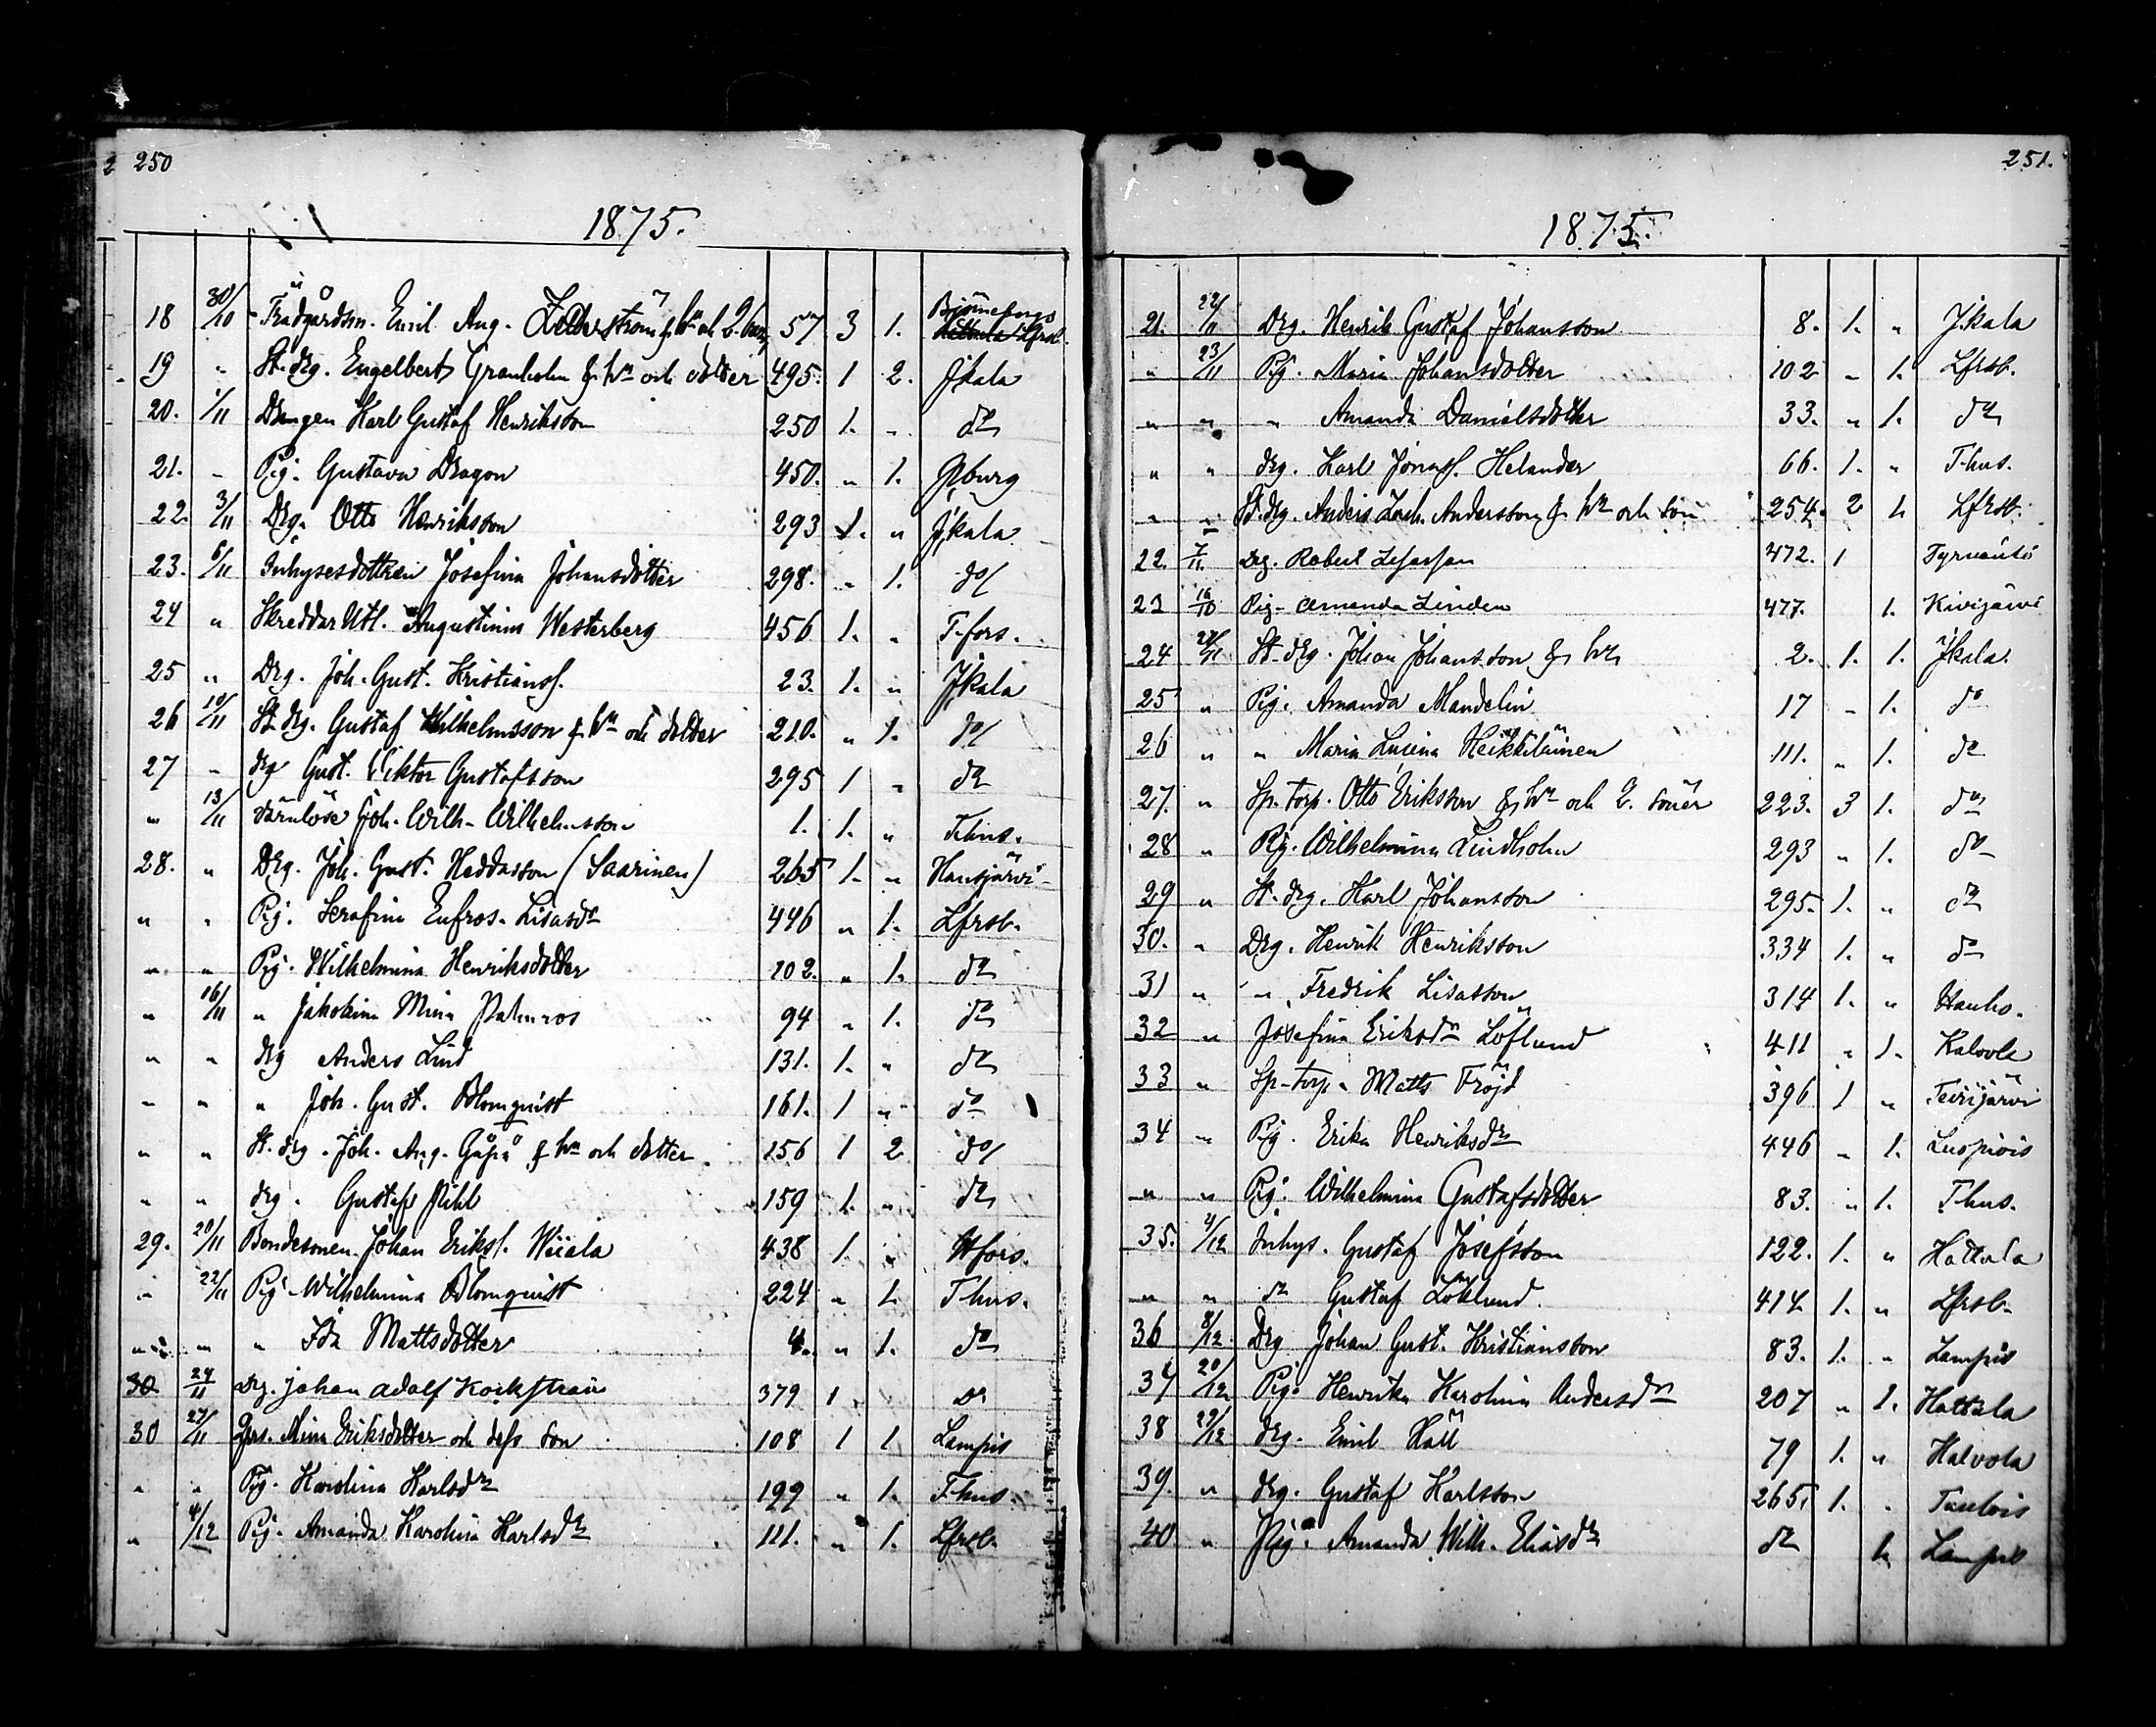 2 250
1875.
18 30/10 Trädgårdsm. Emil Aug. Zederström g. hu och 2. barn 57 3 1. Björneborgs Lfrsb.
19 " St. drg. Engelbert Granholm g. hu och dotter 495. 1 2. Jkala
20. 1/11 Drengen Karl Gustaf Henriksson 250 1. " do
21. " Pig. Gustava Dragon 450. " 1. Jkburg
22. 3/11 Drg. Otto Henriksson 293 1. " Jkala
23. 6/11 Inhysesdottren Josefina Johansdotter 298. " 1. do
24 " Skreddar Utl. Augustinus Westerberg 456 1. " T-fors.
25 " Drg. Joh. Gust. Kristianss. 23. 1. " Jkala
26 10/11 St. drg. Gustaf Wilhelmsson g. hu och dotter 210. " 1. do
27 " drg Gust. Viktor Gustafsson 295 1 " do
" 13/11 Värnlöse Joh. Wilh. Wilhelmsson 1. 1. " Thus.
28. " Drg. Joh. Gust. Heddasson (Saarinen) 265 1. " Hausjärvi
" " Pig. Serafina Eufros. Lisasdr 446 " 1. Lfrsb.
" " Pig. Wilhelmina Henriksdotter 102. " 1. do
" 16/11 " Jakobina Mina Palmros 94 " 1. do
" " drg Anders Lind 131. 1. " do
" " " Joh. Gust. Blomquist 161. 1 " do
" " St. drg. Joh. Aug. Gåpå g. hu och dotter 156 1 2 do
" " drg. Gustaf Pihl 159 1. " do
29. 20/11 Bondesonen Johan Erikss. Wiiala 438 1. " Hfors.
" 22/11 Pig. Wilhelmina Blomquist 224 " 1. Thus.
" " " Ida Mattsdotter 4. " 1. do
30 24/11 Drg. Johan Adolf Kockström 379 1 do
30 27/11 Qns. Mina Eriksdotter och dess son 108 1 1 Lampis
" " Pig. Karolina Karlsdr 199 " 1. Thus.
" 4/12 Pig. Amanda Karolina Karlsdr 111. " 1. Lfrsb.
251.
1875.
21. 22/11 Drg. Henrik Gustaf Johansson 8. 1. " Jkala
" 23/11 Pig. Maria Johansdotter 102 " 1. Lfrsb.
" " " Amanda Danielsdotter 33. " 1. do
" " drg. Karl Jonass. Helander 66. 1. " Thus.
" " St. drg. Anders Zach. Andersson g. hu och son 254. 2 1. Lfrsb.
22. 7/11 Drg. Robert 472. 1 Tyrväntö
23 16/10 Pig. Amanda Linden 477. 1. Kivijärvi
24 27/11 St. drg. Johan Johansson g. hu 2. 1. 1. Jkala.
25 " Pig. Amanda Mandelin 17 " 1. do
26 " " Maria Lusina Heikkiläinen 111. " 1. do
27. " Sp. torp. Otto Eriksson g. hu och 2. söner 223. 3 1. do
28 " Pig. Wilhelmina Lindholm 293 " 1. do
29 " St. drg. Karl Johansson 295. 1. " do
30. " Drg. Henrik Henriksson 334 1. " do
31 " " Fredrik Lisasson 314 1. " Hauho.
32 " Josefina Eriksdr Löflund 411 " 1. Kalvola
33 " Sp. torp. Matts Fröjd 396 1 " Teirijärvi
34 " Pig. Erika Henriksdr 446 " 1. Luopiois
" " Pig. Wilhelmina Gustafsdotter 83. " 1. Thus.
35. 4/12 Inhys. Gustaf Josefsson 122. 1. " Hattula
" " do Gustaf Löklund. 414 1. " Lfrsb.
36 8/12 Drg Johan Gust. Kristiansson 83. 1. " Lampis
37 20/12 Pig. Henrika Karolina Andersdr 207 " 1. Hattula
38 29/12 drg. Emil Häll 79 1. " Kalvola
39. " drg. Gustaf Karlsson 265. 1. " Tuulois
40 " Pig. Amanda Wilh. Eliasdr do 1. Lampis